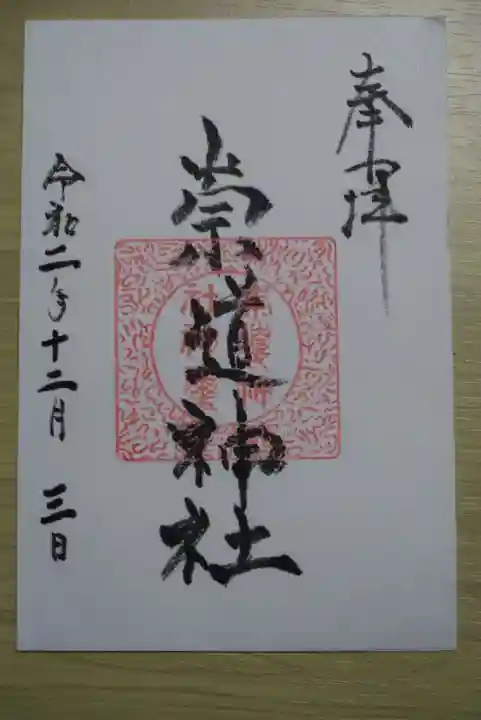 奉拝
崇道神社
令和二年十二月 三日